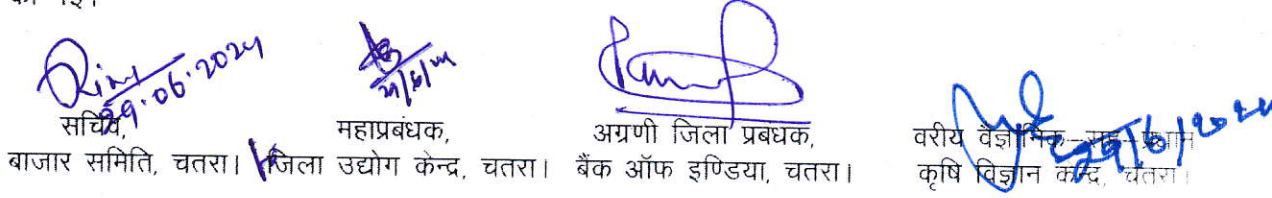 की गई।
29.06.2024
29/6/24
29/6/2024
सचिव,
बाजार समिति, चतरा।
महाप्रबंधक,
जिला उद्योग केन्द्र, चतरा।
अग्रणी जिला प्रबंधक,
बैंक ऑफ इण्डिया, चतरा।
वरीय वैज्ञानिक-सह-प्रधान
कृषि विज्ञान केन्द्र, चतरा।